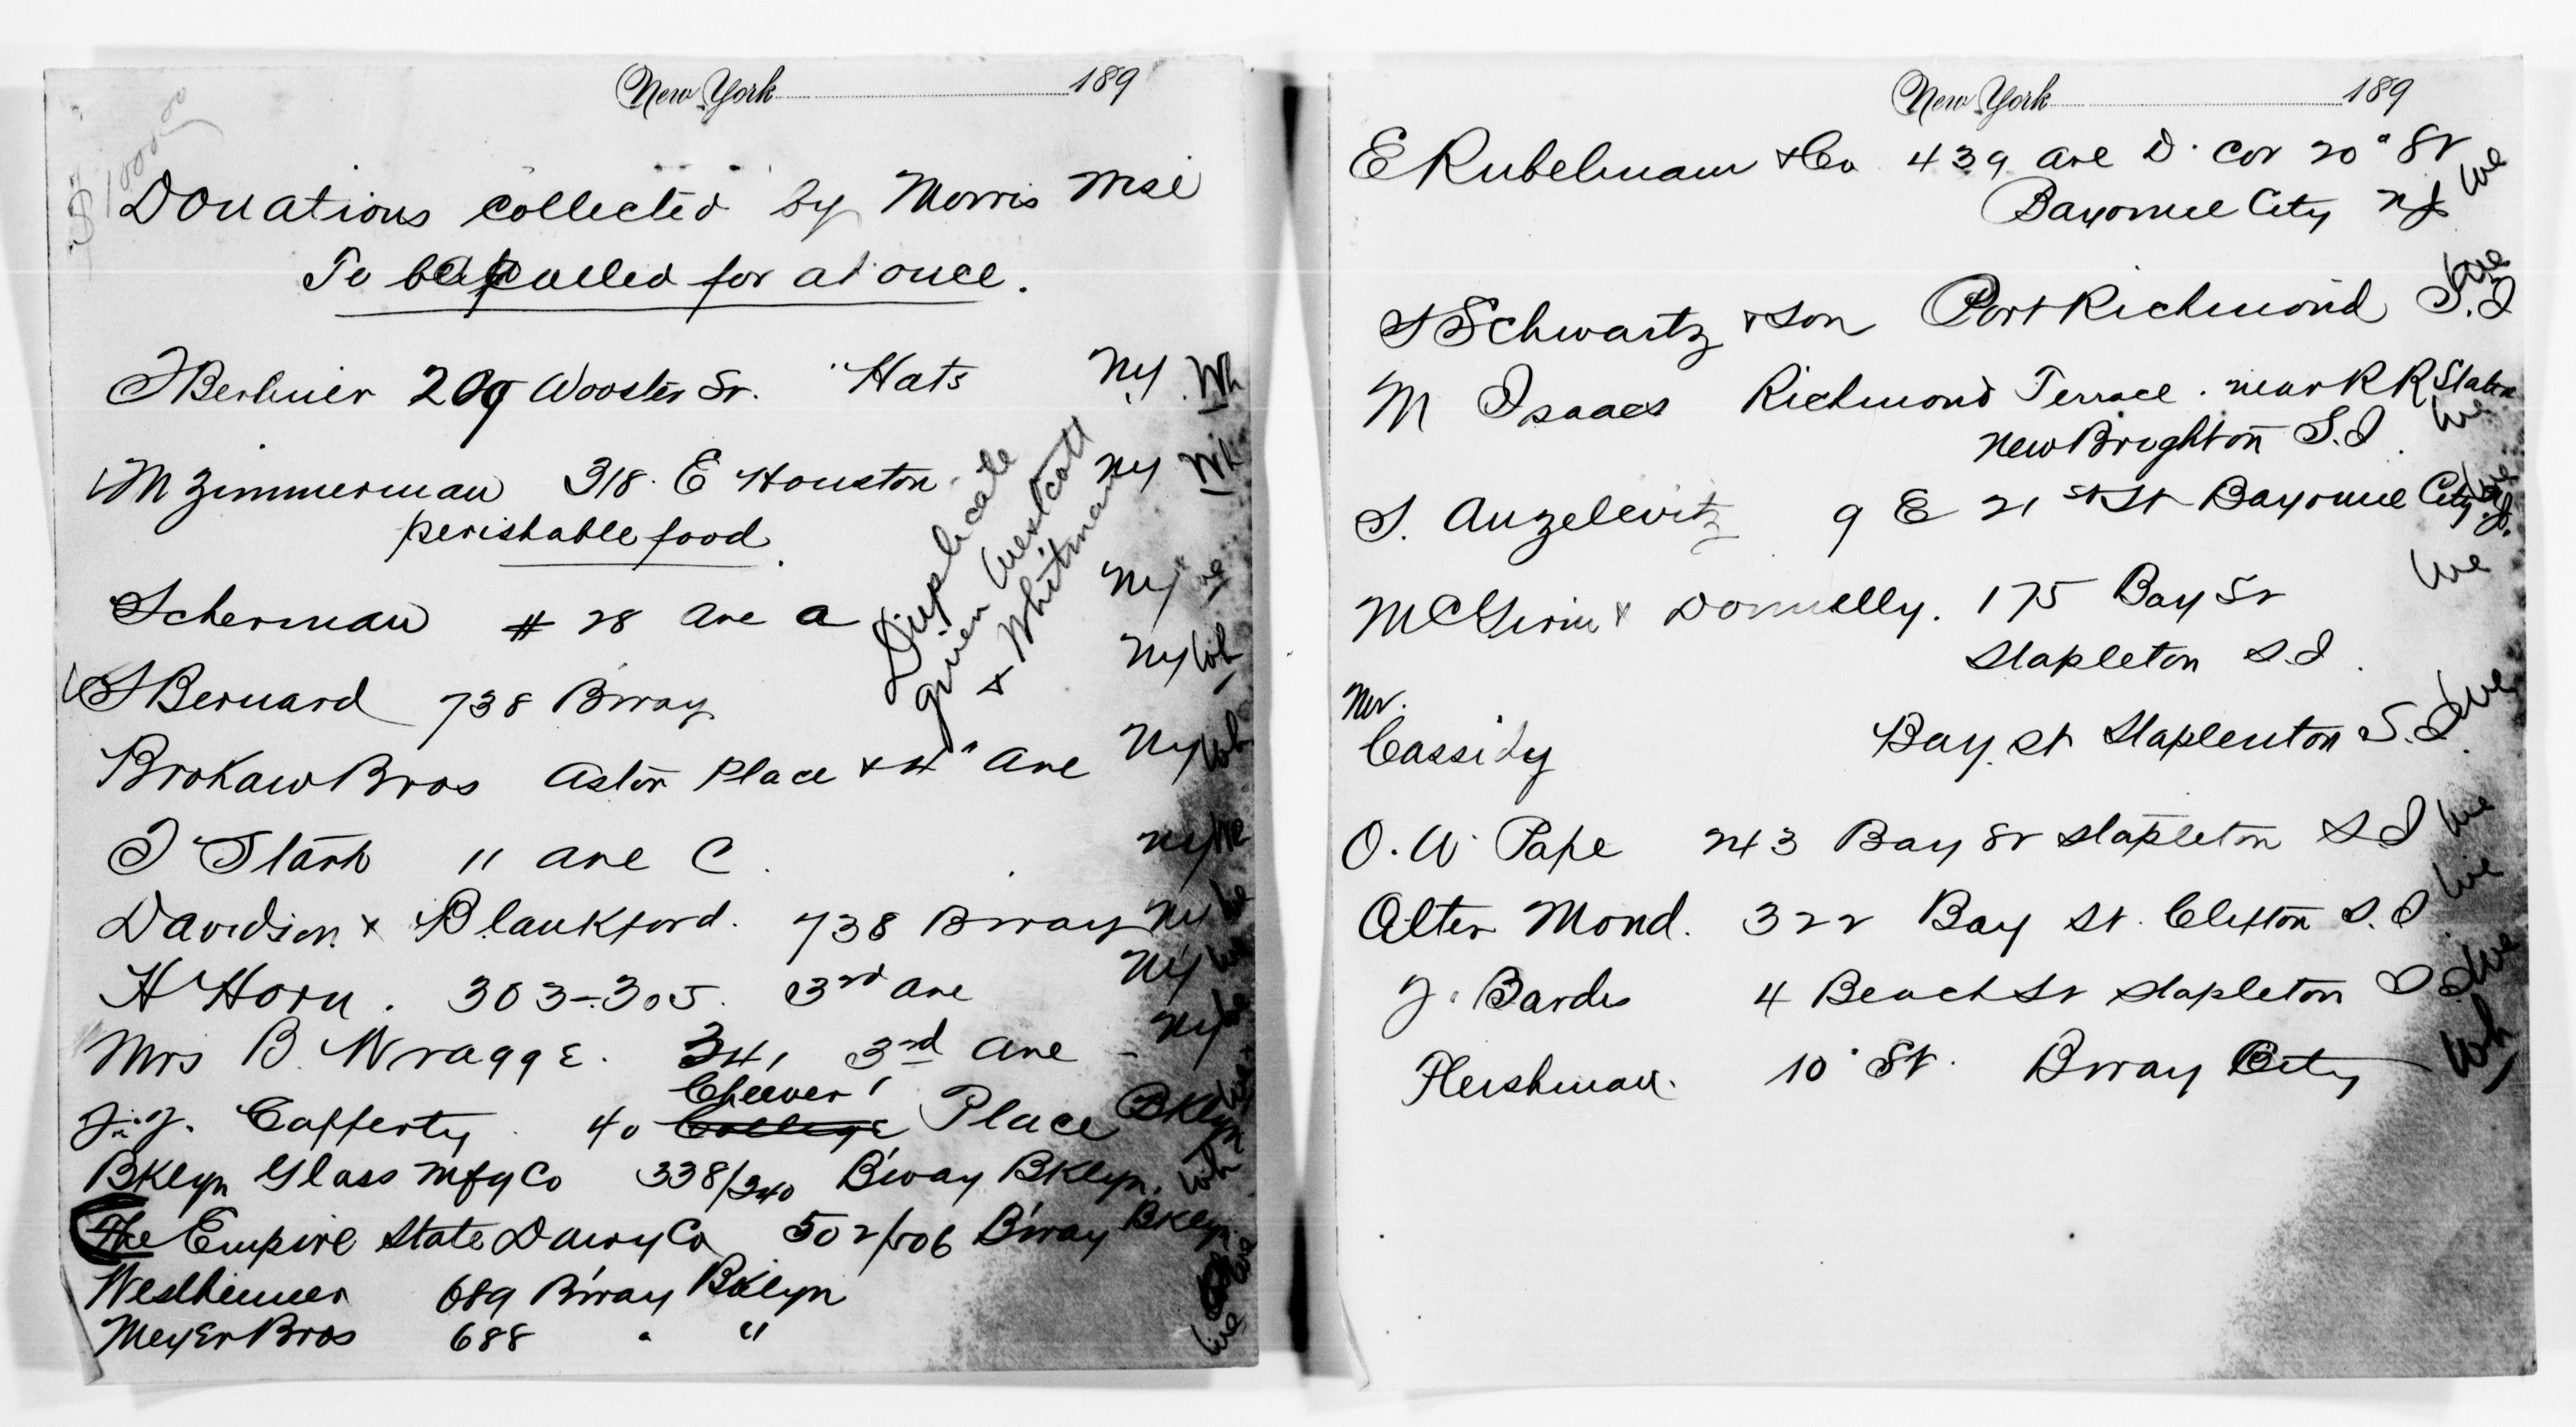 New York 189
Donations collected by Morris
To be called for at once.
I Berliner 209 Wooster St. Hats NY. Wh
M Zimmerman 318. E Houston. NY Wh
perishable food
Duplicate
given Westcott
& Whitman
Scherman # 28 Ave a NY We
S Bernard 738 B'way NY Wh
Brokaw Bros Astor Place & 4" Ave NY Wh
I Stark 11 Ave C. NY We
Davidson & Blankford. 738 Bway NY We
H Horn. 303-305. 3rd Ave NY We
Mrs B. Wragge. 341 3rd Ave - NY We
Cheever
J. J. Cafferty 40 College Place Bklyn
Bklyn Glass Mfg Co 338/340 B'way Bklyn. Wh
The Empire State Dairy Co 502/506 B'way Bklyn
Westheimer 689 B'way Bklyn We
Meyer Bros 688 " " We
New York 189
E Rubelmann & Co 439 Ave D. cor 20" St
Bayonne City NJ We
S Schwartz & Son Port Richmond S.I We
M Isaacs Richmond Terrace. near R R Station
New Brighton S.I. We
S. Auzelevitz 9 E 21 st St Bayonne City N.J. We
McGivin & Donnelly. 175 Bay St We
Stapleton S.I.
Mr.
Cassidy Bay. St Staplenton S.I. We
O. W. Pape 243 Bay St Stapleton S I We
Alter Mond. 322 Bay St. Clifton S.I We
J. Bardes 4 Beach St Stapleton S I We
Hershman. 10" St. Bway City Wh